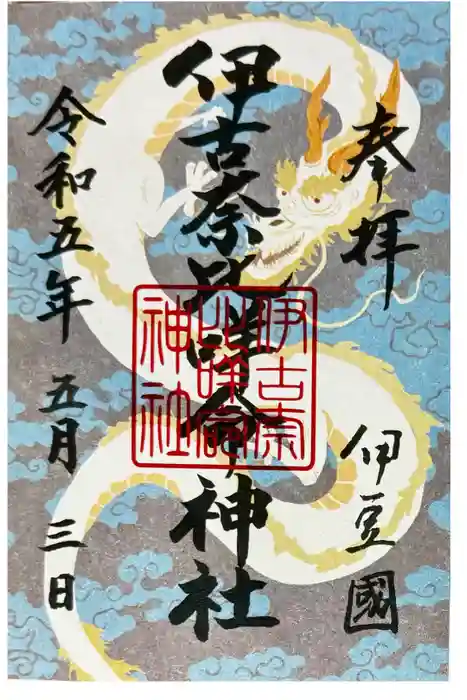 奉拝
伊豆國
伊古奈比咩命神社
伊古奈
比咩命
神社
令和五年 五月 三日